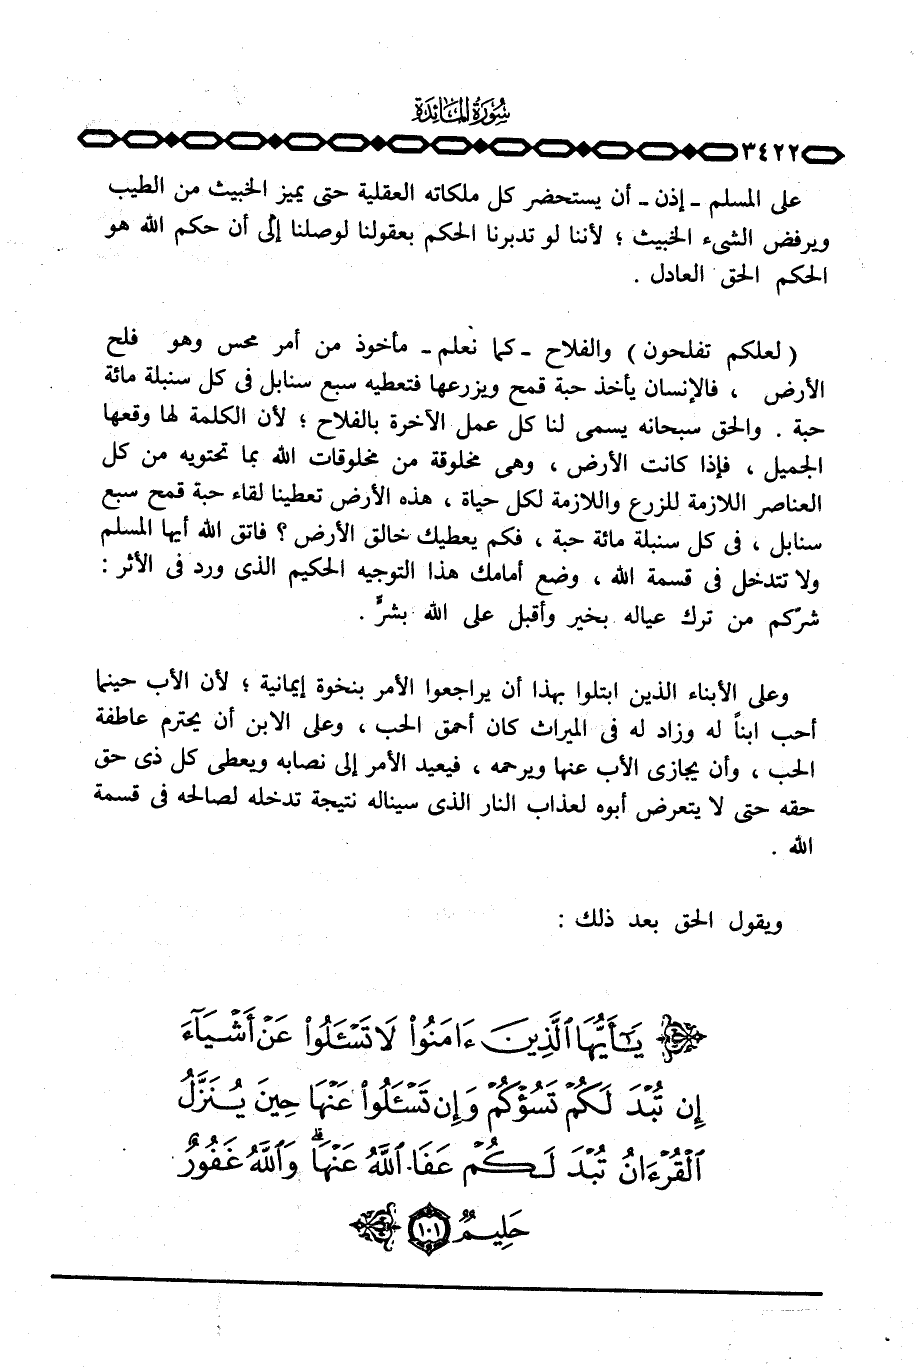 سُورَةُ المَائِدَة
٣٤٢٢
على المسلم - إذن - أن يستحضر كل ملكاته العقلية حتى يميز الخبيث من الطيب
ويرفض الشىء الخبيث ؛ لأننا لو تدبرنا الحكم بعقولنا لوصلنا إلى أن حكم الله هو
الحكم الحق العادل .
( لعلكم تفلحون ) والفلاح - كما نعلم - مأخوذ من أمر محس وهو فلح
الأرض ، فالإنسان يأخذ حبة قمح ويزرعها فتعطيه سبع سنابل فى كل سنبلة مائة
حبة . والحق سبحانه يسمى لنا كل عمل الآخرة بالفلاح ؛ لأن الكلمة لها وقعها
الجميل ، فإذا كانت الأرض ، وهى مخلوقة من مخلوقات الله بما تحتويه من كل
العناصر اللازمة للزرع واللازمة لكل حياة ، هذه الأرض تعطينا لقاء حبة قمح سبع
سنابل ، فى كل سنبلة مائة حبة ، فكم يعطيك خالق الأرض ؟ فاتق الله أيها المسلم
ولا تتدخل فى قسمة الله ، وضع أمامك هذا التوجيه الحكيم الذى ورد فى الأثر :
شرّكم من ترك عياله بخير وأقبل على الله بشرٍّ .
وعلى الأبناء الذين ابتلوا بهذا أن يراجعوا الأمر بنخوة إيمانية ؛ لأن الأب حينما
أحب ابناً له وزاد له فى الميراث كان أحمق الحب ، وعلى الابن أن يحترم عاطفة
الحب ، وأن يجازى الأب عنها ويرحمه ، فيعيد الأمر إلى نصابه ويعطى كل ذى حق
حقه حتى لا يتعرض أبوه لعذاب النار الذى سيناله نتيجة تدخله لصالحه فى قسمة
الله .
ويقول الحق بعد ذلك :
يَٰٓأَيُّهَا ٱلَّذِينَ ءَامَنُوا۟ لَا تَسْـَٔلُوا۟ عَنْ أَشْيَآءَ
إِن تُبْدَ لَكُمْ تَسُؤْكُمْ وَإِن تَسْـَٔلُوا۟ عَنْهَا حِينَ يُنَزَّلُ
ٱلْقُرْءَانُ تُبْدَ لَكُمْ عَفَا ٱللَّهُ عَنْهَا ۗ وَٱللَّهُ غَفُورٌ
حَلِيمٌ ١٠١